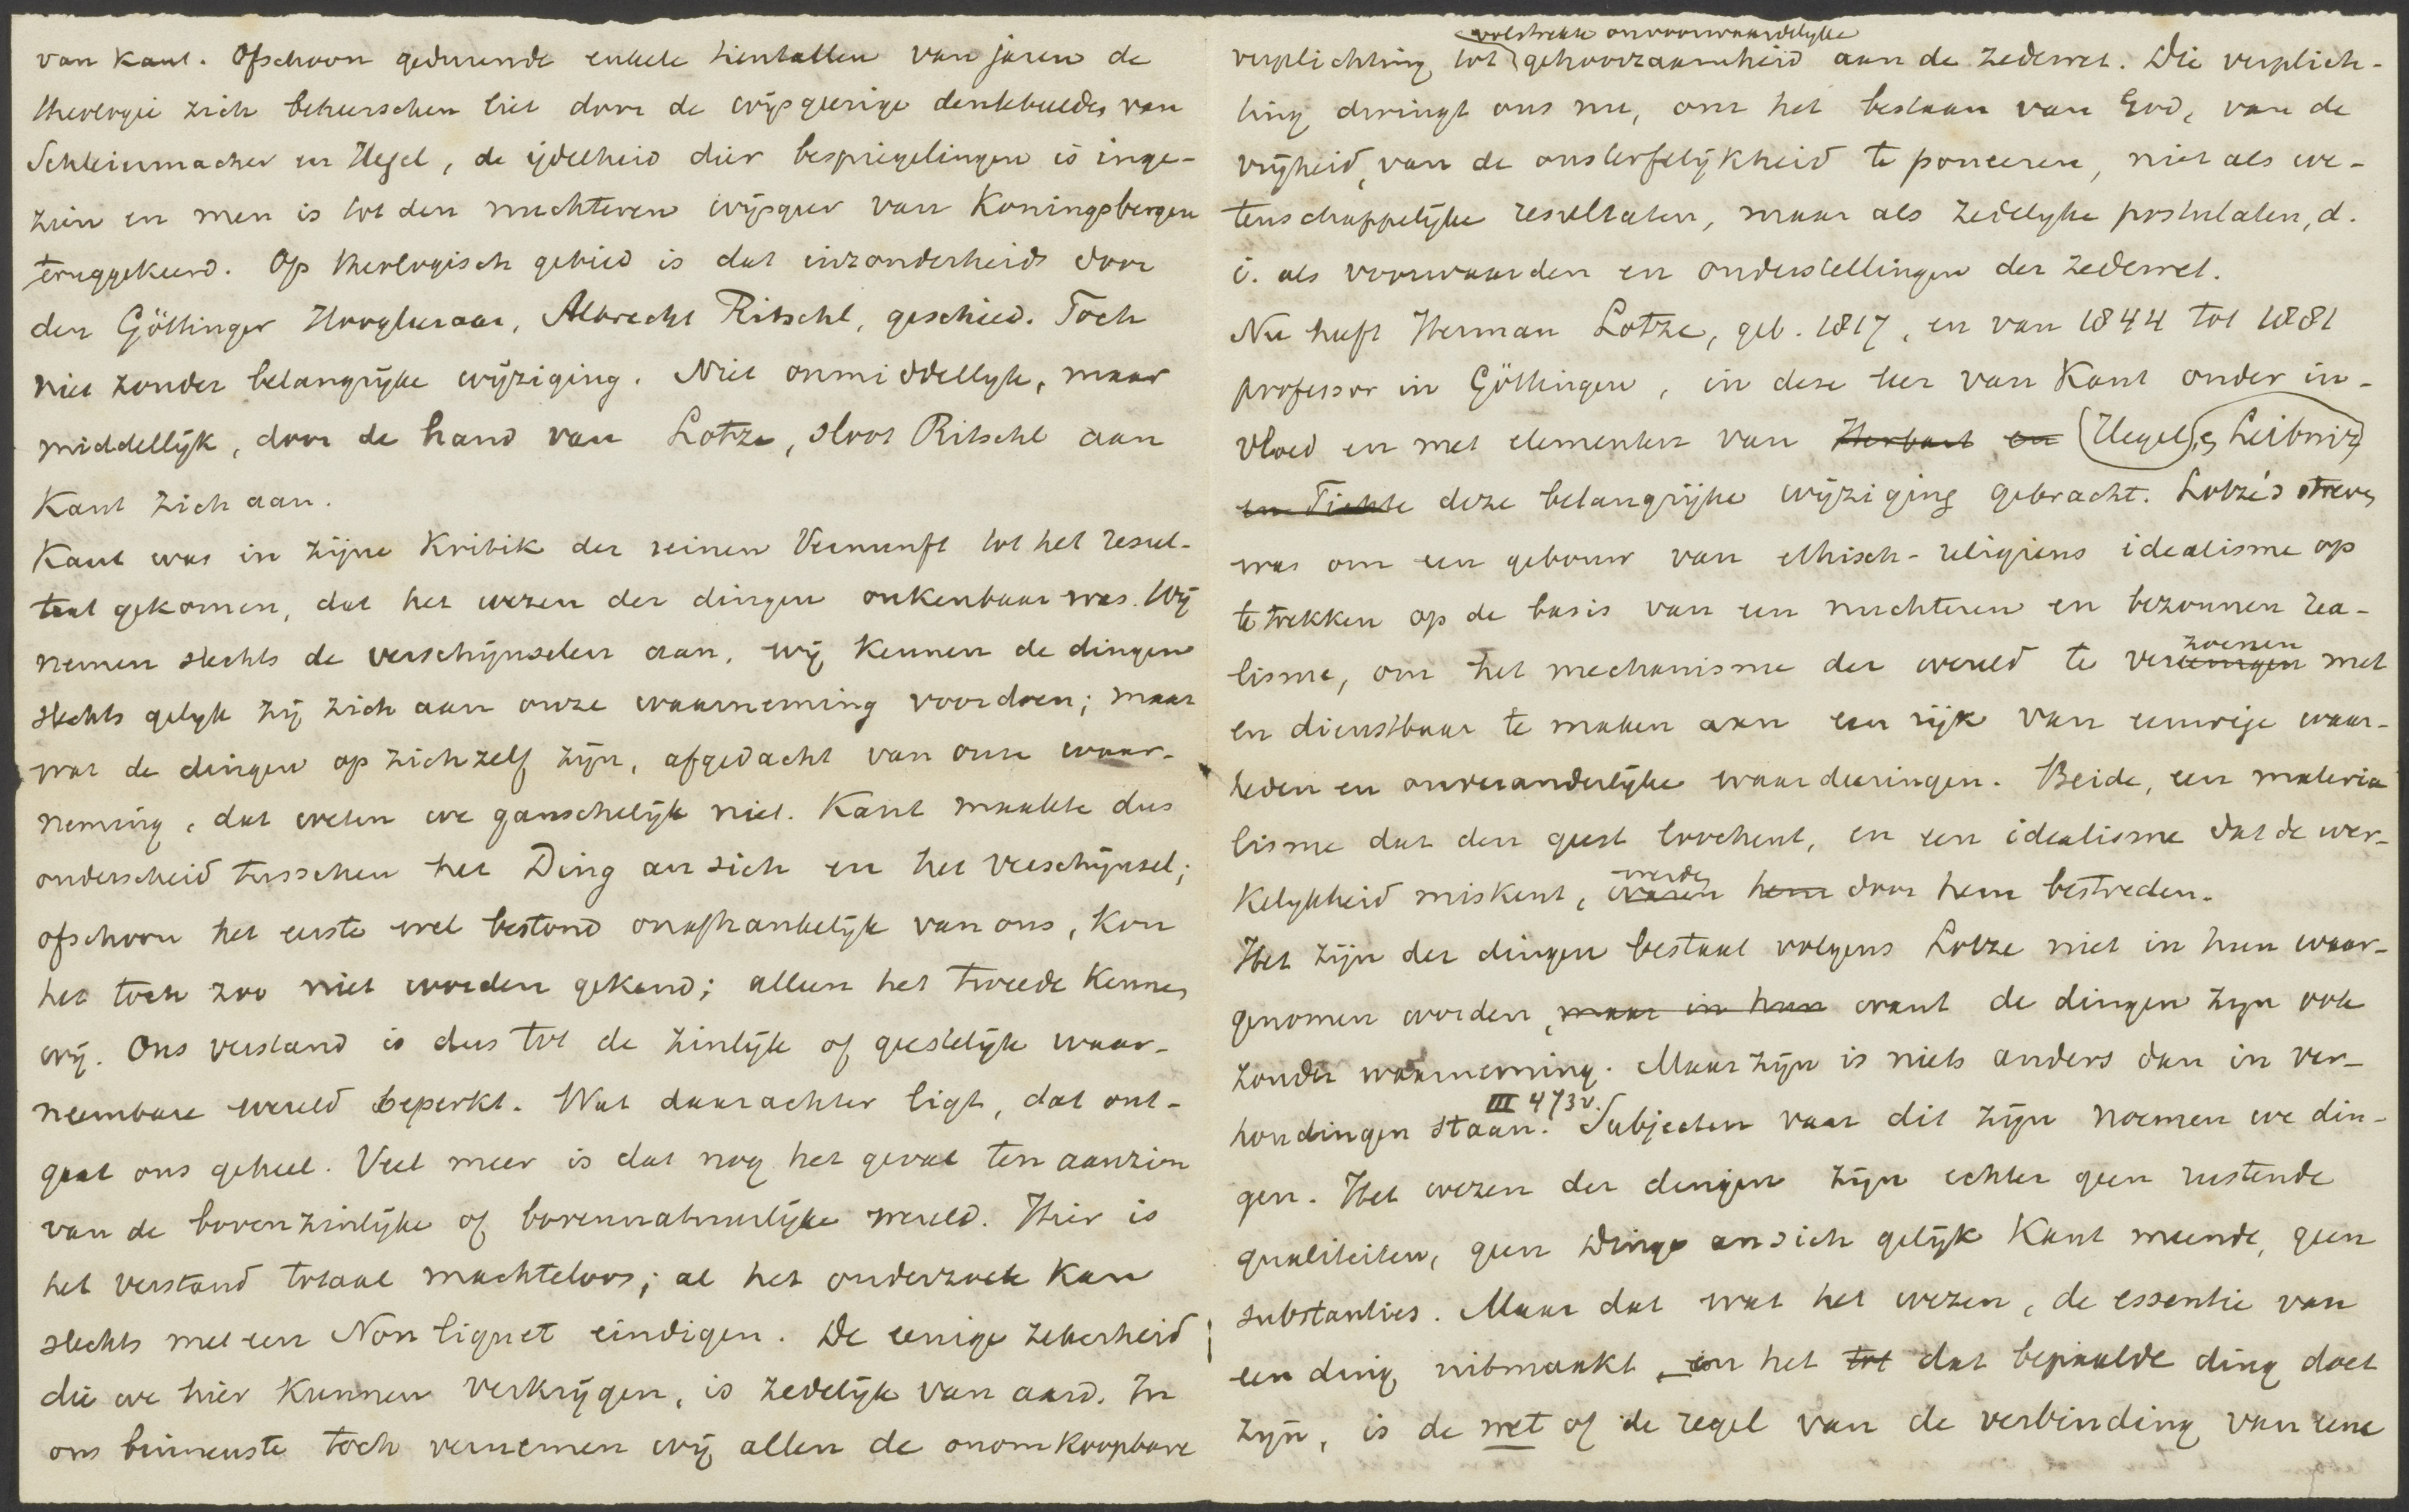 van Kant. Ofschoon gedurende enkele tientallen van jaren de
theologie zich beheerschen liet door de wijsgeerige denkbeelden van
Schleiermacher en Hegel, de ijdelheid dier bespiegelingen is inge-
zien en men is tot den nuchteren wijsgeer van Koningsbergen
teruggekeerd. Op theologisch gebied is dat inzonderheid door
den Göttinger Hoogleeraar, Albrecht Ritschl, geschied. Toch
niet zonder belangrijke wijziging. Niet onmiddellijk, maar
middellijk, door de hand van Lotze, sloot Ritschl aan
Kant zich aan.
Kant was in zijne Kritik der reinen Vernunft tot het resul-
taat gekomen, dat het wezen der dingen onkenbaar was. Wij
nemen slechts de verschijnselen aan, wij kennen de dingen
slechts gelijk zij zich aan onze waarneming voordoen; maar
wat de dingen op zichzelf zijn, afgedacht van onze waar-
neming, dat weten we ganschelijk niet. Kant maakte dus
onderscheid tusschen het Ding an sich en het verschijnsel;
ofschoon het eerste wel bestond onafhankelijk van ons, kon
het toch zoo niet worden gekend; alleen het tweede kennen
wij. Ons verstand is dus tot de zinlijk of geestelijk waar-
neembare wereld beperkt. Wat daarachter ligt, dat ont-
gaat ons geheel. Veel meer is dat nog het geval ten aanzien
van de bovenzinlijke of bovennatuurlijke wereld. Hier is
het verstand totaal machteloos; al het onderzoek kan
slechts met een Non liquet eindigen. De eenige zekerheid
die we hier kunnen verkrijgen, is zedelijk van aard. In
ons binnenste toch vernemen wij allen de onomkoopbare
volstrekte onvoorwaardelijke
verplichting tot gehoorzaamheid aan de zedewet. Die verplich-
ting dwingt ons nu, om het bestaan van God, van de
vrijheid, van de onsterfelijkheid te poneeren, niet als we-
tenschappelijke resultaten, maar als zedelijke postulaten, d.
i. als voorwaarden en onderstellingen der zedewet.
Nu heeft Herman Lotze, geb. 1817, en van 1844 tot 1881
professor in Göttingen, in deze leer van Kant onder in-
vloed en met elementen van Herbart en Hegel, en Leibniz
en Fichte deze belangrijke wijziging gebracht. Lotze's streven
was om een gebouw van ethisch-religieus idealisme op
te trekken op de basis van een nuchteren en bezonnen rea-
zoenen
lisme, om het mechanisme der wereld te vereenigen met
en dienstbaar te maken aan een rijk van eeuwige waar-
heden en onveranderlijke waardeeringen. Beide, een materia
lisme dat den geest loochent, en een idealisme dat de wer-
werden
kelijkheid miskent, waren hem door hem bestreden.
Het zijn der dingen bestaat volgens Lotze niet in hun waar-
genomen worden, maar in hun want de dingen zijn ook
zonder waarneming. Maar zijn is niets anders dan in ver-
III 473v.
houdingen staan. Subjecten vaar dit zijn noemen we din-
gen. Het wezen der dingen zijn echter geen rustende
qualiteiten, geen Dinge an sich gelijk Kant meende, geen
substanties. Maar dat wat het wezen, de essentie van
een ding uitmaakt, en het tot dat bepaalde ding doet
zijn, is de wet of de regel van de verbinding van eene